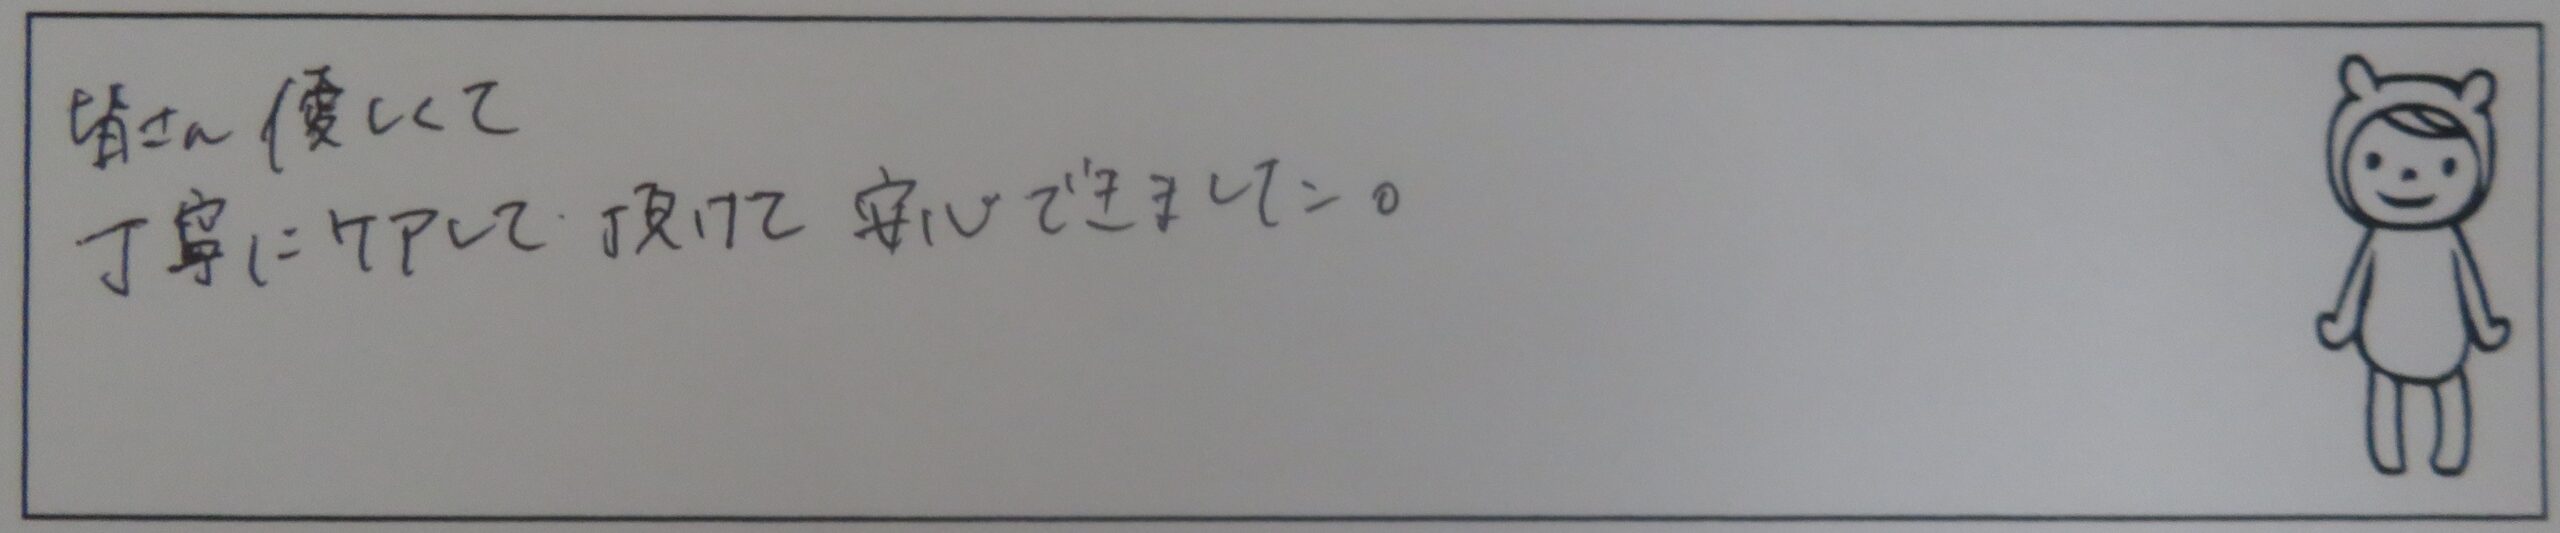 皆さん優しくて
丁寧にケアして頂けて安心できました。